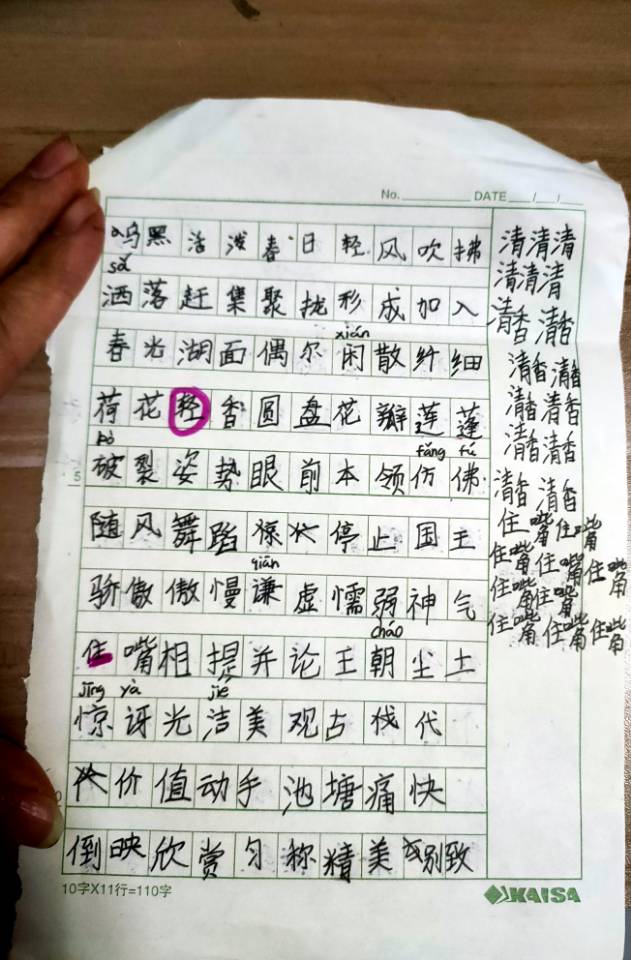 No. DATE / /
乌黑活泼春日轻风吹拂
sǎ
洒落赶集聚拢形成加入
xián
春光湖面偶尔闲散纤细
荷花轻香圆盘花瓣莲蓬
pò fǎng fú
破裂姿势眼前本领仿佛
随风舞蹈 停止国王
qiān
骄傲傲慢谦虚懦弱神气
cháo
住嘴相提并论王朝尘土
jīng yà jié
惊讶光洁美观古代
价值动手池塘痛快
倒映欣赏匀称精美别致
10字X11行=110字
KAISA
清清清
清清清
清香 清香
清香 清香
清香 清香
清香 清香
清香 清香
住嘴 住嘴
住嘴 住嘴 住嘴
住嘴 住嘴
住嘴 住嘴 住嘴